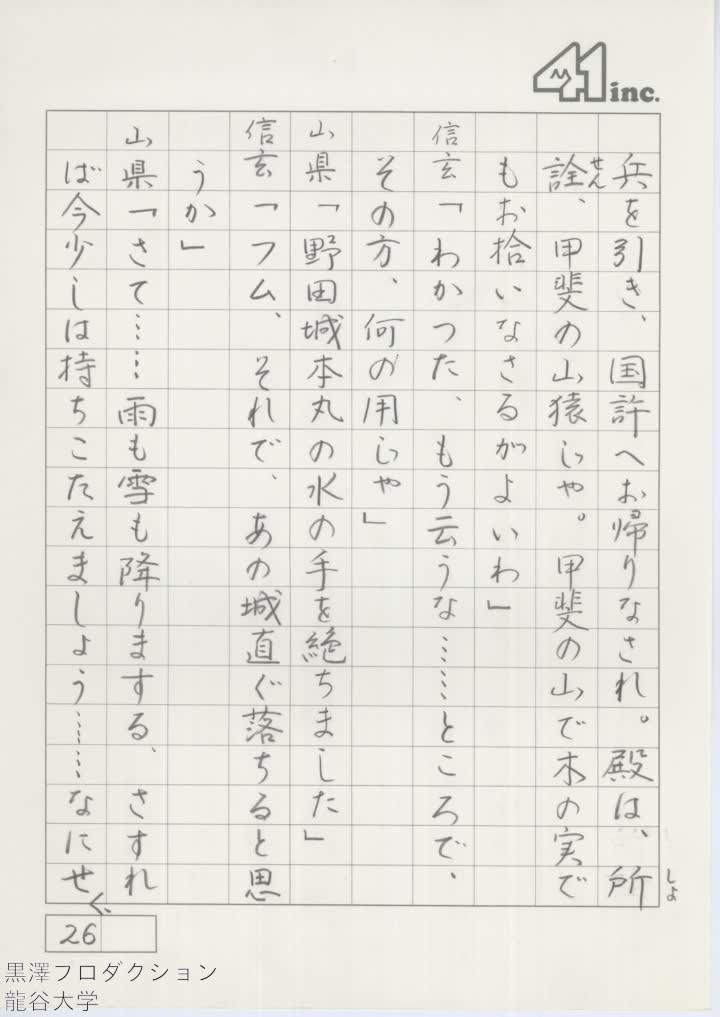 41 inc.
兵を引き、国許へお帰りなされ。殿は、所
しょ
詮、甲斐の山猿じゃ。甲斐の山で木の実で
せん
もお拾いなさるがよいわ」
信玄「わかつた、もう云うな……ところで、
その方、何の用じゃ」
山県「野田城本丸の水の手を絶ちました」
信玄「フム、それで、あの城直ぐ落ちると思
うか」
山県「さて……雨も雪も降りまする、さすれ
ば今少しは持ちこたえましょう……なにせ
26
黒澤プロダクション
龍谷大学